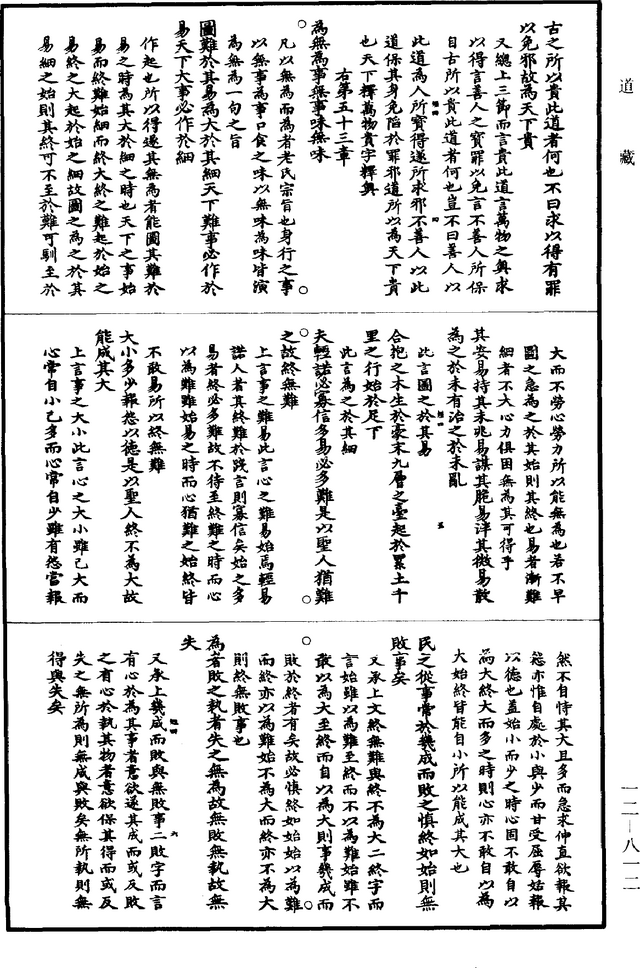 道藏
古之所以貴此道者何也不曰求以得有罪
以免邪故為天下貴
又總上三節而言貴此道言萬物之奧求
以得言善人之寶罪以免言不善人所保
自古所以貴此道者何也豈不曰善人以
此道為人所寶得遂所求邪不善人以此
道保其身免陷於罪邪道所以為天下貴
也天下釋萬物貴字釋奧
右第五十三章
為無為事無事味無味
凡以無為而為者老氏宗旨也身行之事
以無事為事口食之味以無味為味皆演
為無為一句之旨
圖難於其易為大於其細天下難事必作於
易天下大事必作於細
作起也所以得遂其無為者能圖其難於
易之時為其大於細之時也天下之事始
易而終難始細而終大終之難起於始之
易終之大起於始之細故圖之為之於其
易細之始則其終可不至於難可馴至於
大而不勞心勞力所以能無為也若不早
圖之急為之於其始則其終也易者漸難
細者不大心力俱困無為其可得乎
其安易持其未兆易謀其脆易泮其微易散
為之於未有治之於未亂
此言圖之於其易
合抱之木生於豪末九層之臺起於累土千
里之行始於足下
此言為之於其細
夫輕諾必寡信多易必多難是以聖人猶難
之故終無難
上言事之難易此言心之難易始焉輕易
諾人者其終難於踐言則寡信矣始之多
易者終必多難故不待至終難之時而心
以為難雖始易之時而心猶難之始終皆
不敢易所以終無難
大小多少報怨以德是以聖人終不為大故
能成其大
上言事之大小此言心之大小雖已大而
心常自小己多而心常自少雖有怨當報
然不自恃其大且多而急求伸直欲報其
怨亦惟自處於小與少而甘受屈辱姑報
以德也蓋始小而少之時心固不敢自以
為大終大而多之時則心亦不敢自以為
大始終皆能自小所以能成其大也
民之從事常於幾成而敗之慎終如始則無
敗事矣
又承上文終無難與終不為大二終字而
言始雖以為難至終而不以為難始雖不
敢以為大至終而自以為大則事幾成而
敗於終者有矣故必慎終如始始以為難
而終亦以為難始不為大而終亦不為大
則終無敗事也
為者敗之執者失之無為故無敗無執故無
失
又承上幾成而敗與無敗事二敗字而言
有心於為其事者意欲遂其成而或反敗
之有心於執其物者意欲保其得而或反
失之無所為則無成與敗矣無所執則無
得與失矣
一二—八一二